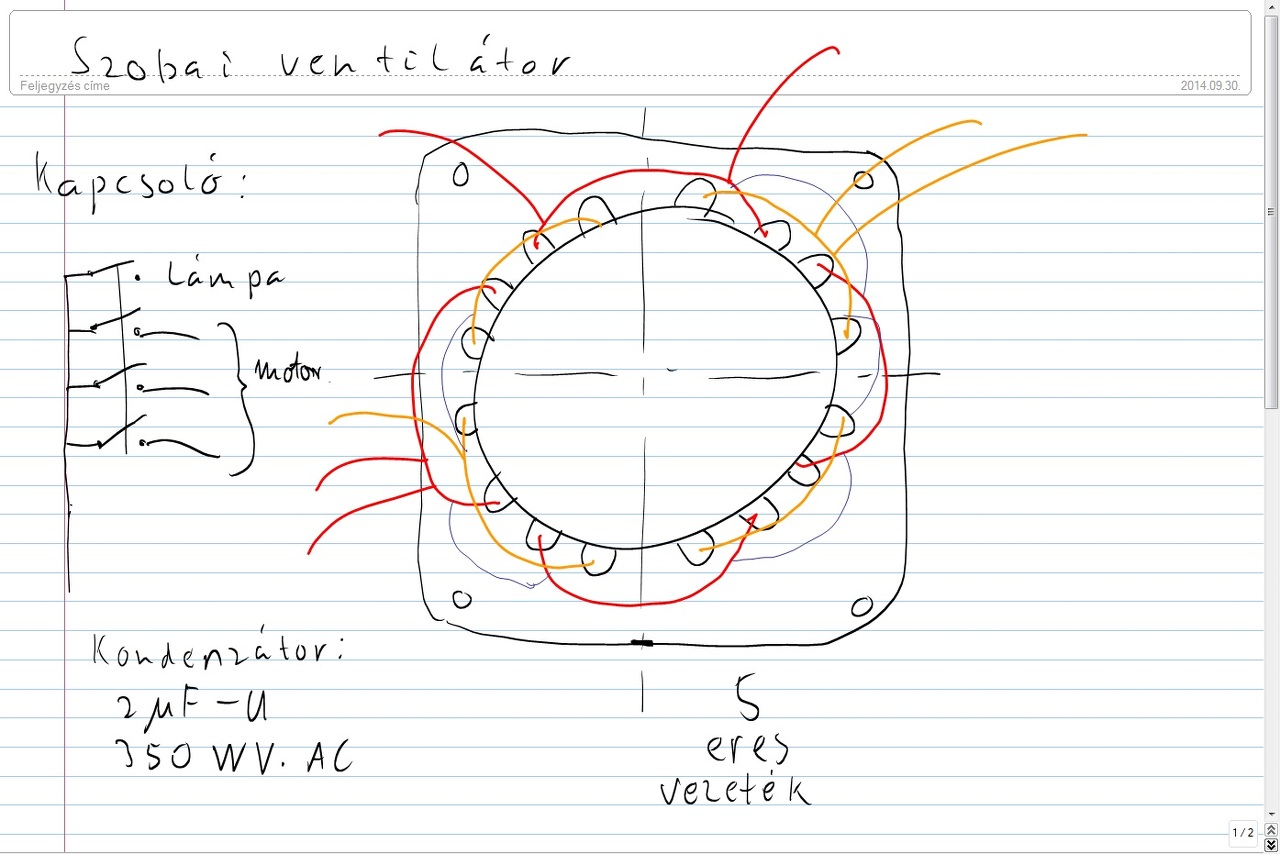 Szobai ventilátor
Feljegyzés címe
2014.09.30.
Kapcsoló:
Lámpa
motor.
Kondenzátor:
2 µF - U
350 WV. AC
5
eres
vezeték
1 / 2